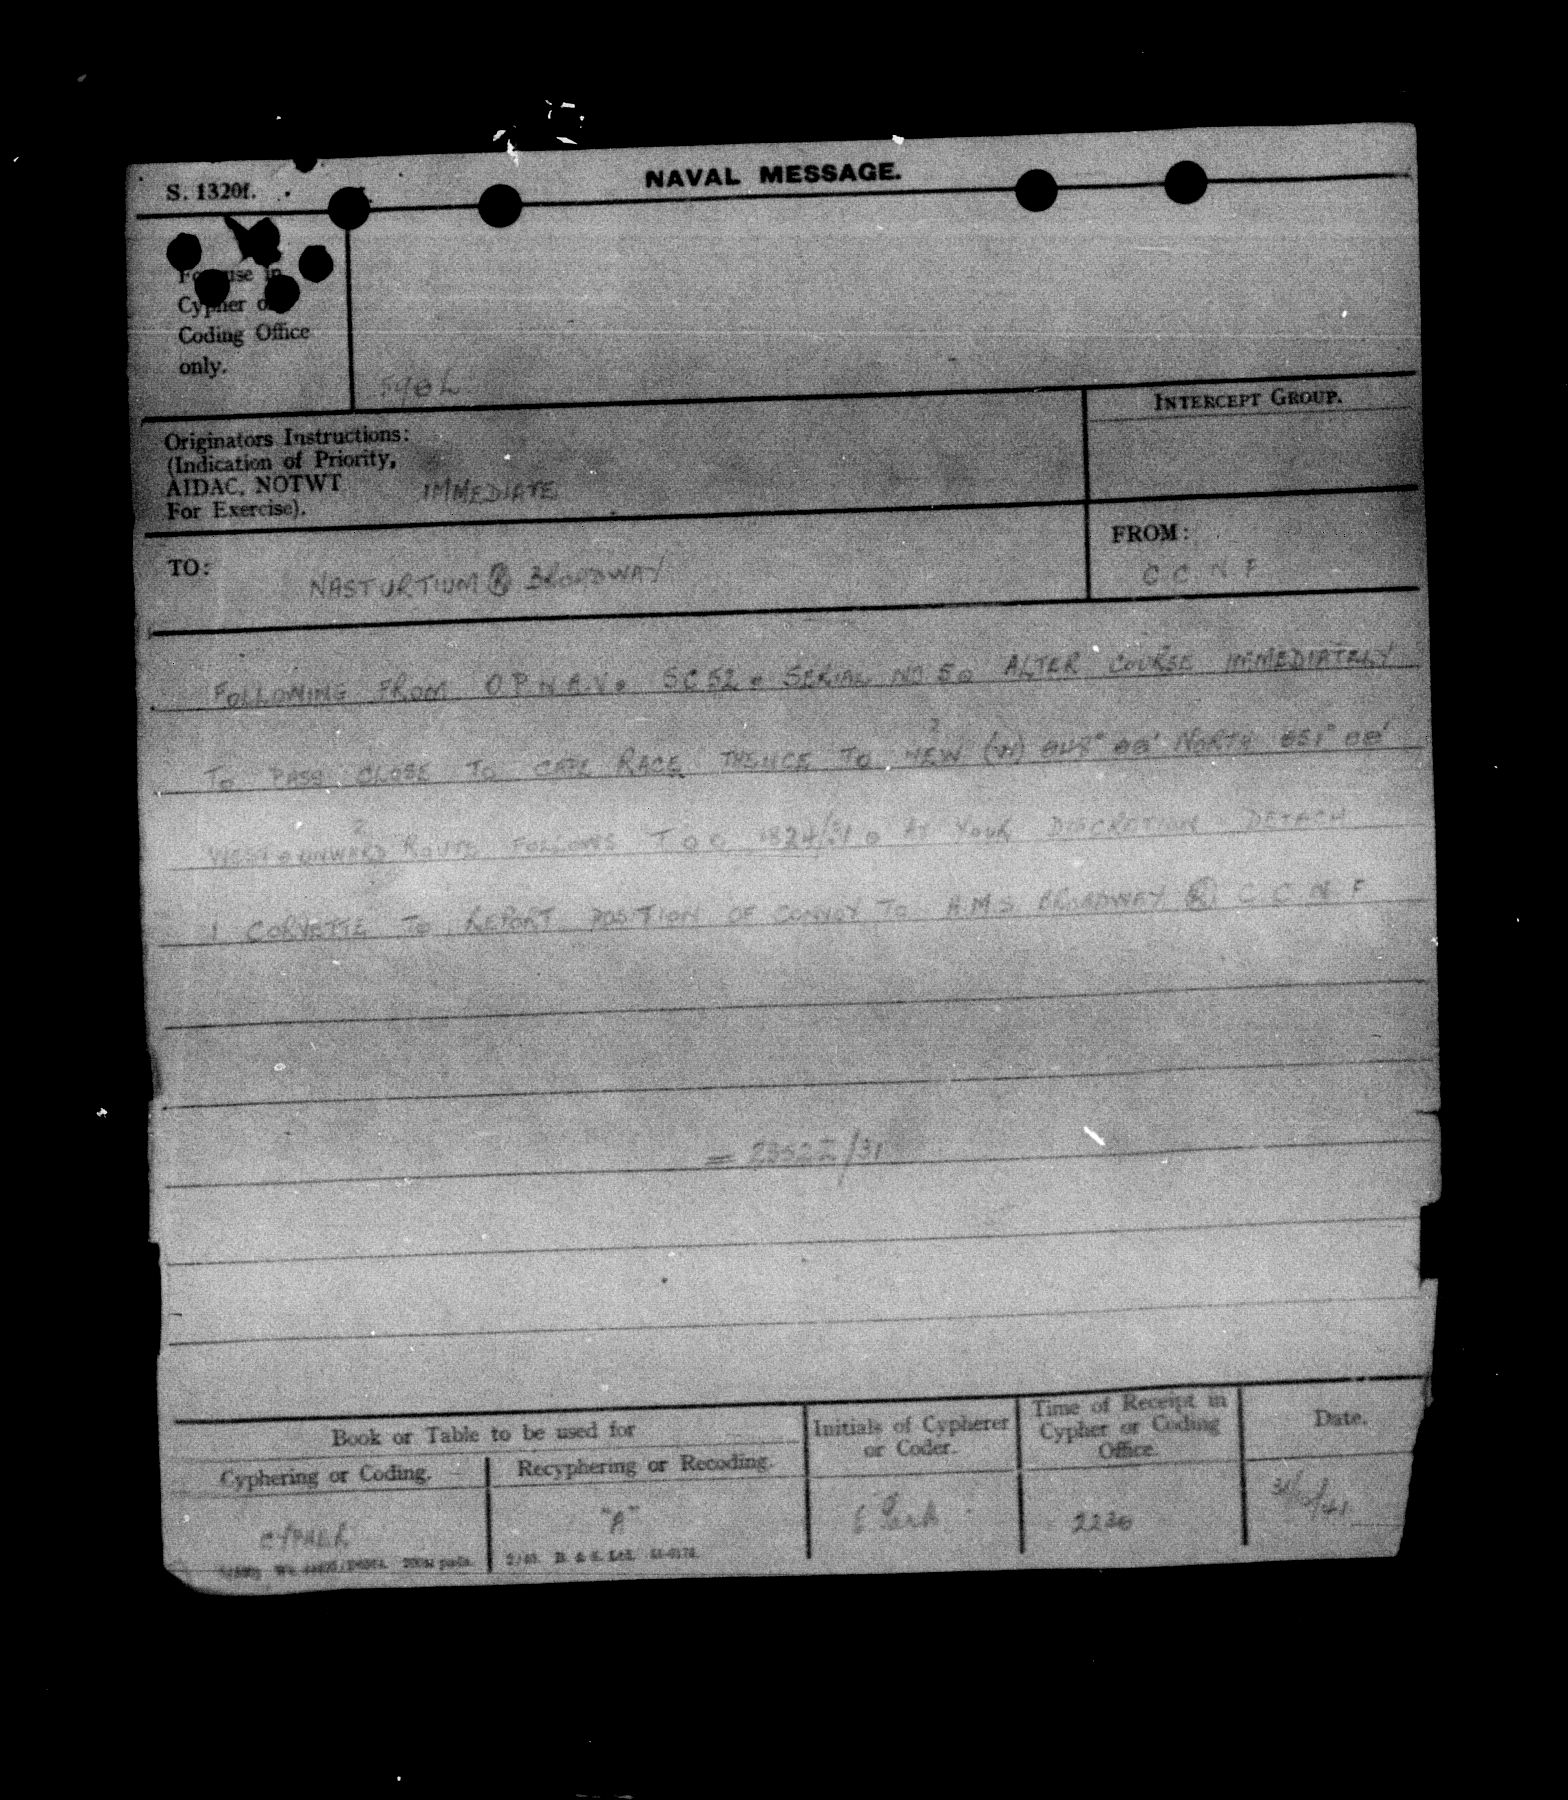 S. 1320f.
NAVAL MESSAGE.
For use in
Cypher or
Coding Office
only.
Originators Instructions:
(Indication of Priority,
AIDAC, NOTWT
For Exercise).
IMMEDIATE
INTERCEPT GROUP.
TO:
NASTURTIUM Ⓡ BROADWAY
FROM:
C C N F
FOLLOWING FROM O.P.N.A.V. SC52. SERIAL NO 5. ALTER COURSE IMMEDIATELY
TO PASS CLOSE TO CAPE RACE THENCE TO NEW (W) 048° 00' NORTH 051° 00'
WEST ONWARD ROUTE FOLLOWS T O O 1824/31. AT YOUR DISCRETION DETACH
1 CORVETTE TO REPORT POSITION OF CONVOY TO H.M.S BROADWAY Ⓡ C C N F
= 2352Z/31
Book or Table to be used for
Cyphering or Coding.
Recyphering or Recoding.
Initials of Cypherer
or Coder.
Time of Receipt in
Cypher or Coding
Office.
Date.
CYPHER
"A"
2230
31/10/41